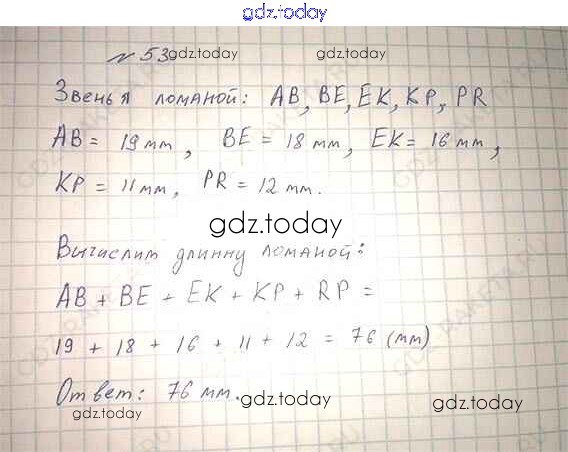 gdz.today
№ 53 gdz.today gdz.today
Звенья ломаной: AB, BE, EK, KP, PR
AB = 19 мм, BE = 18 мм, EK = 16 мм,
KP = 11 мм, PR = 12 мм.
gdz.today
Вычислит длинну ломаной:
AB + BE + EK + KP + RP =
19 + 18 + 16 + 11 + 12 = 76 (мм)
Ответ: 76 мм. gdz.today gdz.today
gdz.today